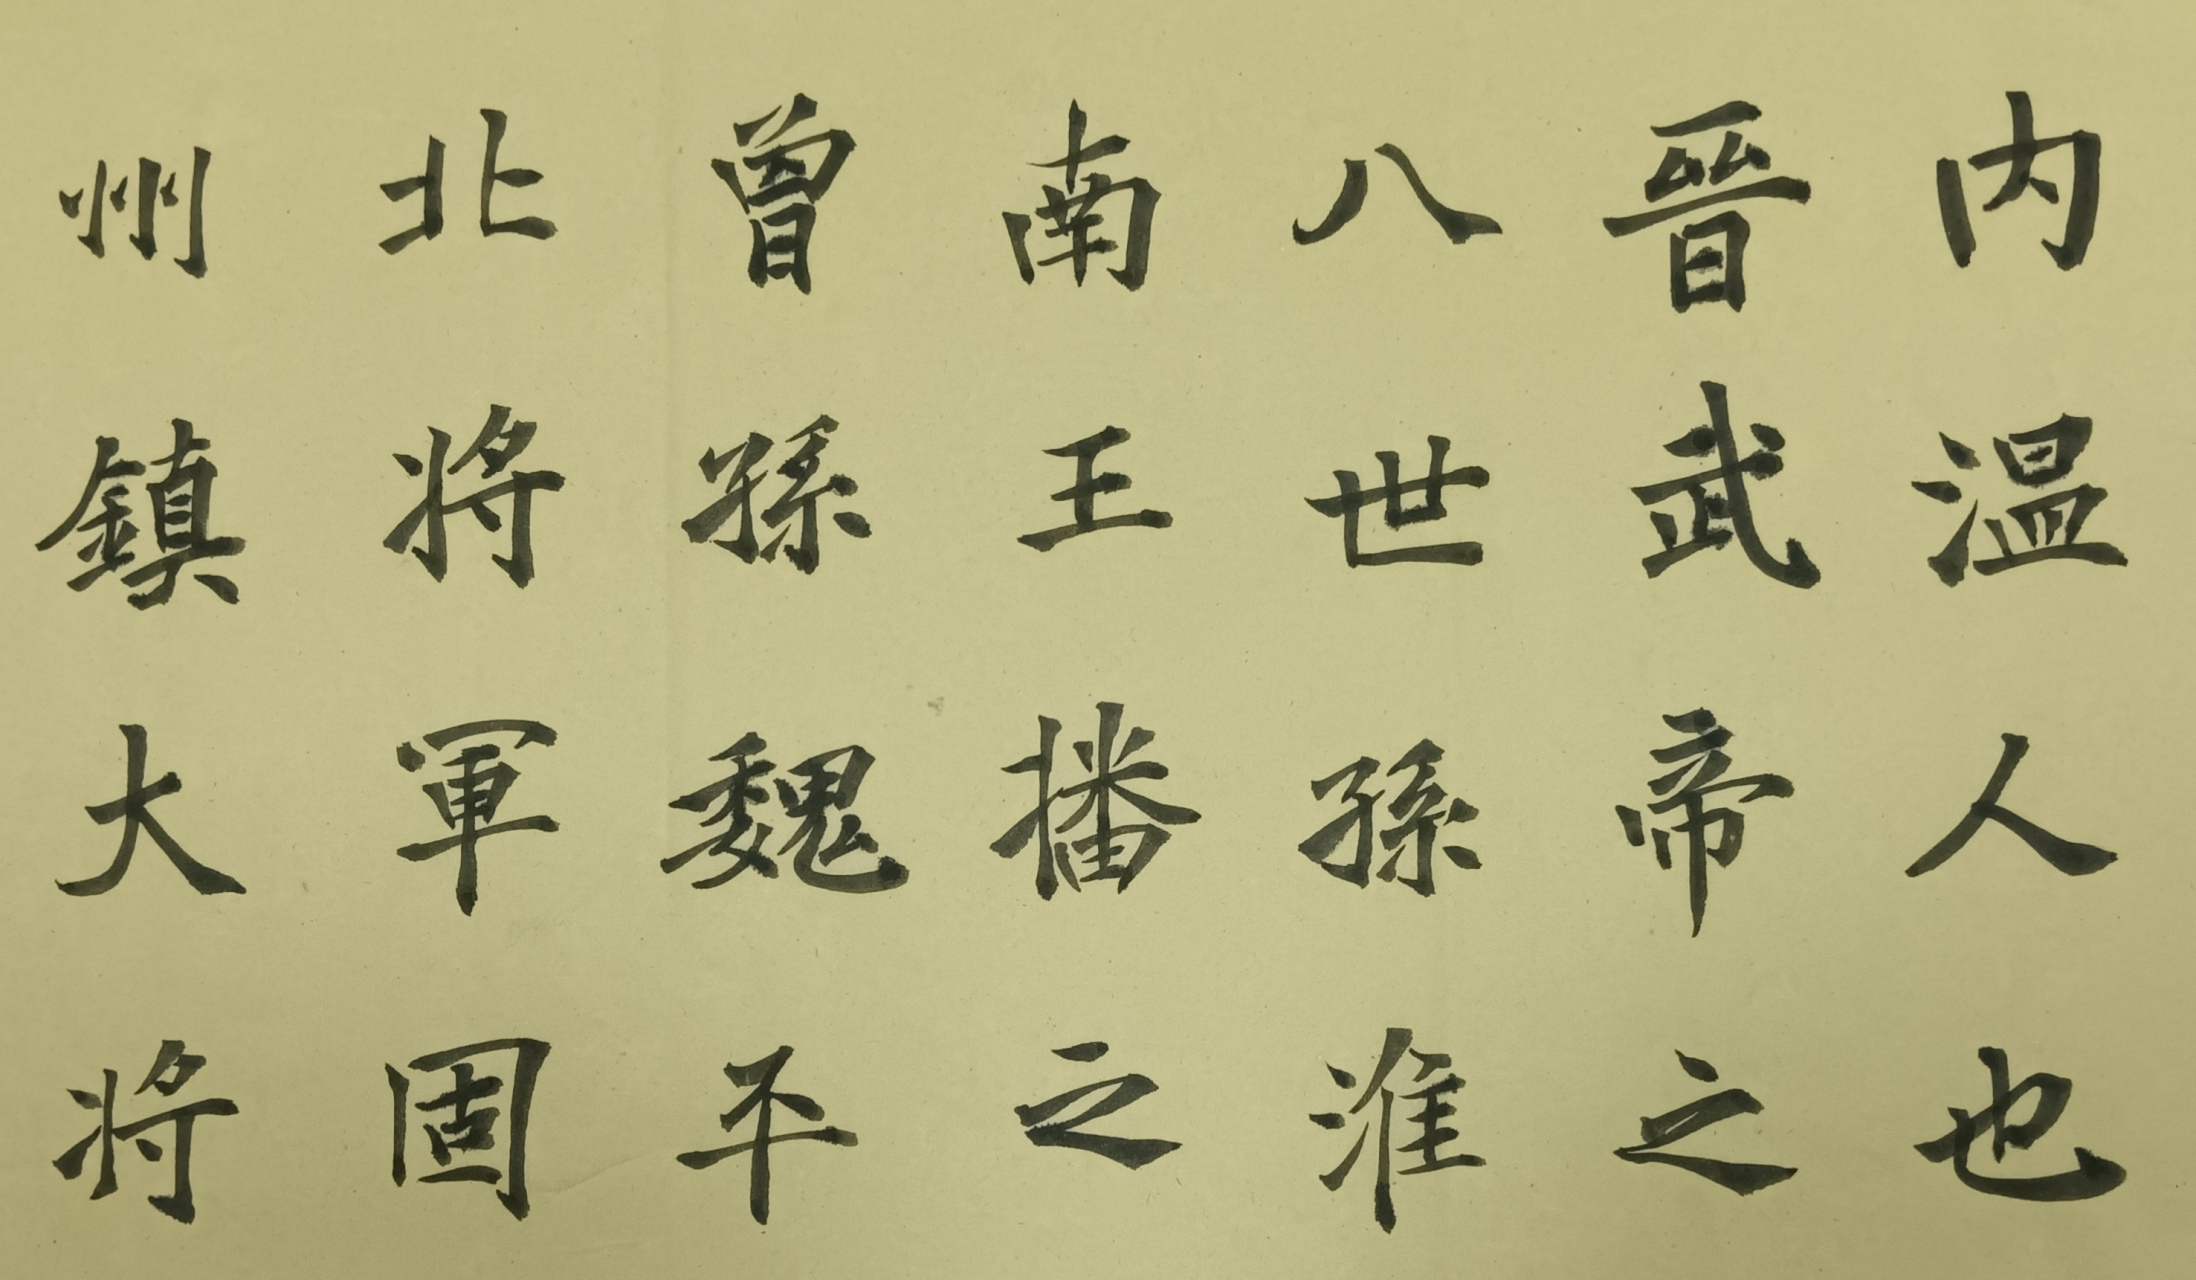 内温人也
晉武帝之
八世孫淮
南王播之
曾孫魏平
北將軍固
州鎮大將